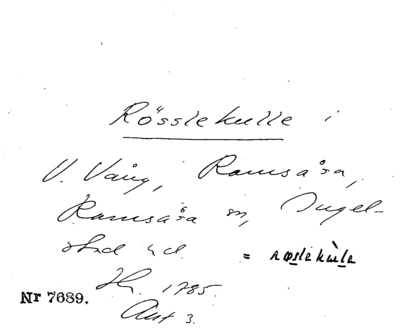 Rösslekulle i
V. Vång, Ramsåsa,
Ramsåsa sn, Ingel-
stad hd. = ræslekùle
Sk. 1785.
Nr 7689.
Akt 3.